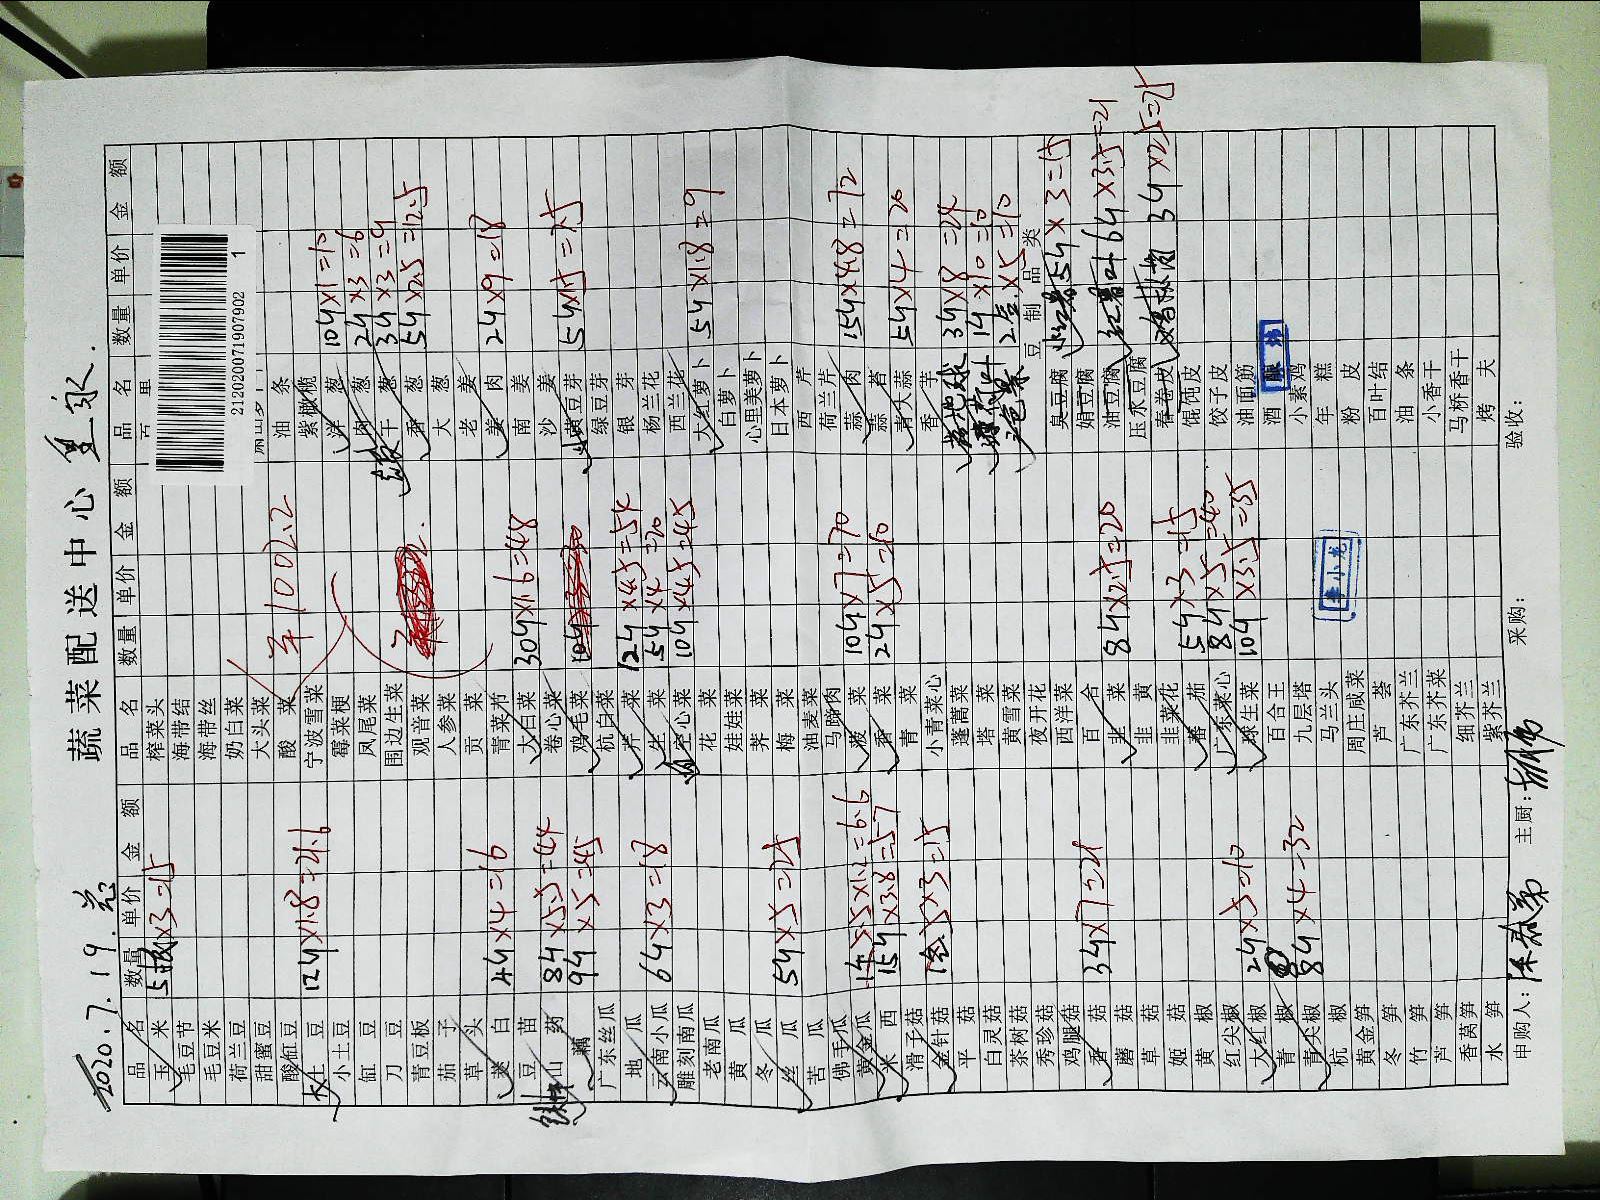 蔬菜配送中心
2020.7.19.
212020071907902 1
品名 数量 单价 金额 品名 数量 单价 金额 品名 数量 单价 金额
玉米 ×3=15 榨菜头
毛豆节 海带结
毛豆米 海带丝
荷兰豆 奶白菜
甜蜜豆 大头菜 1002.2
酸豇豆 酸菜 油条
土豆 12斤×1.8=21.6 宁波雪菜 紫橄榄
小土豆 霉菜梗 洋葱 10斤×1=10
豇豆 凤尾菜 肉葱 2斤×3=6
刀豆 围边生菜 干葱 3斤×3=9
青豆板 观音菜 香葱 5斤×2.5=12.5
茄子 人参菜 大葱
草头 贡菜 老姜
茭白 4斤×4=16 青菜节 姜肉 2斤×9=18
豆苗 大白菜 30斤×1.6=48 南姜
铁棍山药 8斤×5.5=44 卷心菜 沙姜
藕 9斤×5=45 鸡毛菜 黄豆芽 5斤×1.5=7.5
广东丝瓜 杭白菜 绿豆芽
地瓜 芹菜 12斤×4.5=54 银芽
云南小瓜 6斤×3=18 生菜 5斤×4=20 杨兰花
雕刻南瓜 空心菜 10斤×4.5=45 西兰花
老南瓜 花菜 大红萝卜 5斤×1.8=9
黄瓜 娃娃菜 白萝卜
冬瓜 荠菜 心里美萝卜
丝瓜 5斤×5=25 梅菜 日本萝卜
苦瓜 油麦菜 西芹
佛手瓜 马郎肉 荷兰芹
黄金瓜 5.5×1.2=6.6 菠菜 10斤×7=70 蒜肉 15斤×4.8=72
米西 15斤×3.8=57 香菜 2斤×5=10 蒜苔
滑子菇 青菜 青大蒜 5斤×4=20
金针菇 5×3=15 小青菜心 香芋
平菇 蓬蒿菜 3斤×8=24
白灵菇 塔菜 1斤×10=10
茶树菇 黄雪菜 2盒×5=10
秀珍菇 夜开花 豆制品类
鸡腿菇 西洋菜 臭豆腐 5斤×3=15
香菇 3斤×7=21 百合 娟豆腐
蘑菇 韭菜 8斤×2.5=20 油豆腐 红薯叶 6斤×3.5=21
草菇 韭黄 压水豆腐
姬菇 韭菜花 春卷皮 3斤×2.5=7.5
黄椒 番茄 5斤×3=15 馄饨皮
红尖椒 广东菜心 8斤×5=40 饺子皮
大红椒 2斤×5=10 球生菜 10斤×3.5=35 油面筋
青椒 百合王 酒
青尖椒 8斤×4=32 九层塔 小素鸡
杭椒 马兰头 年糕
黄金笋 周庄咸菜 粉皮
冬笋 芦荟 百叶结
竹笋 广东芥兰 油条
芦笋 广东芥菜 小香干
香莴笋 细芥兰 马桥香干
水笋 紫芥兰 烤夫
李小龙
申购人: 主厨: 采购: 验收: